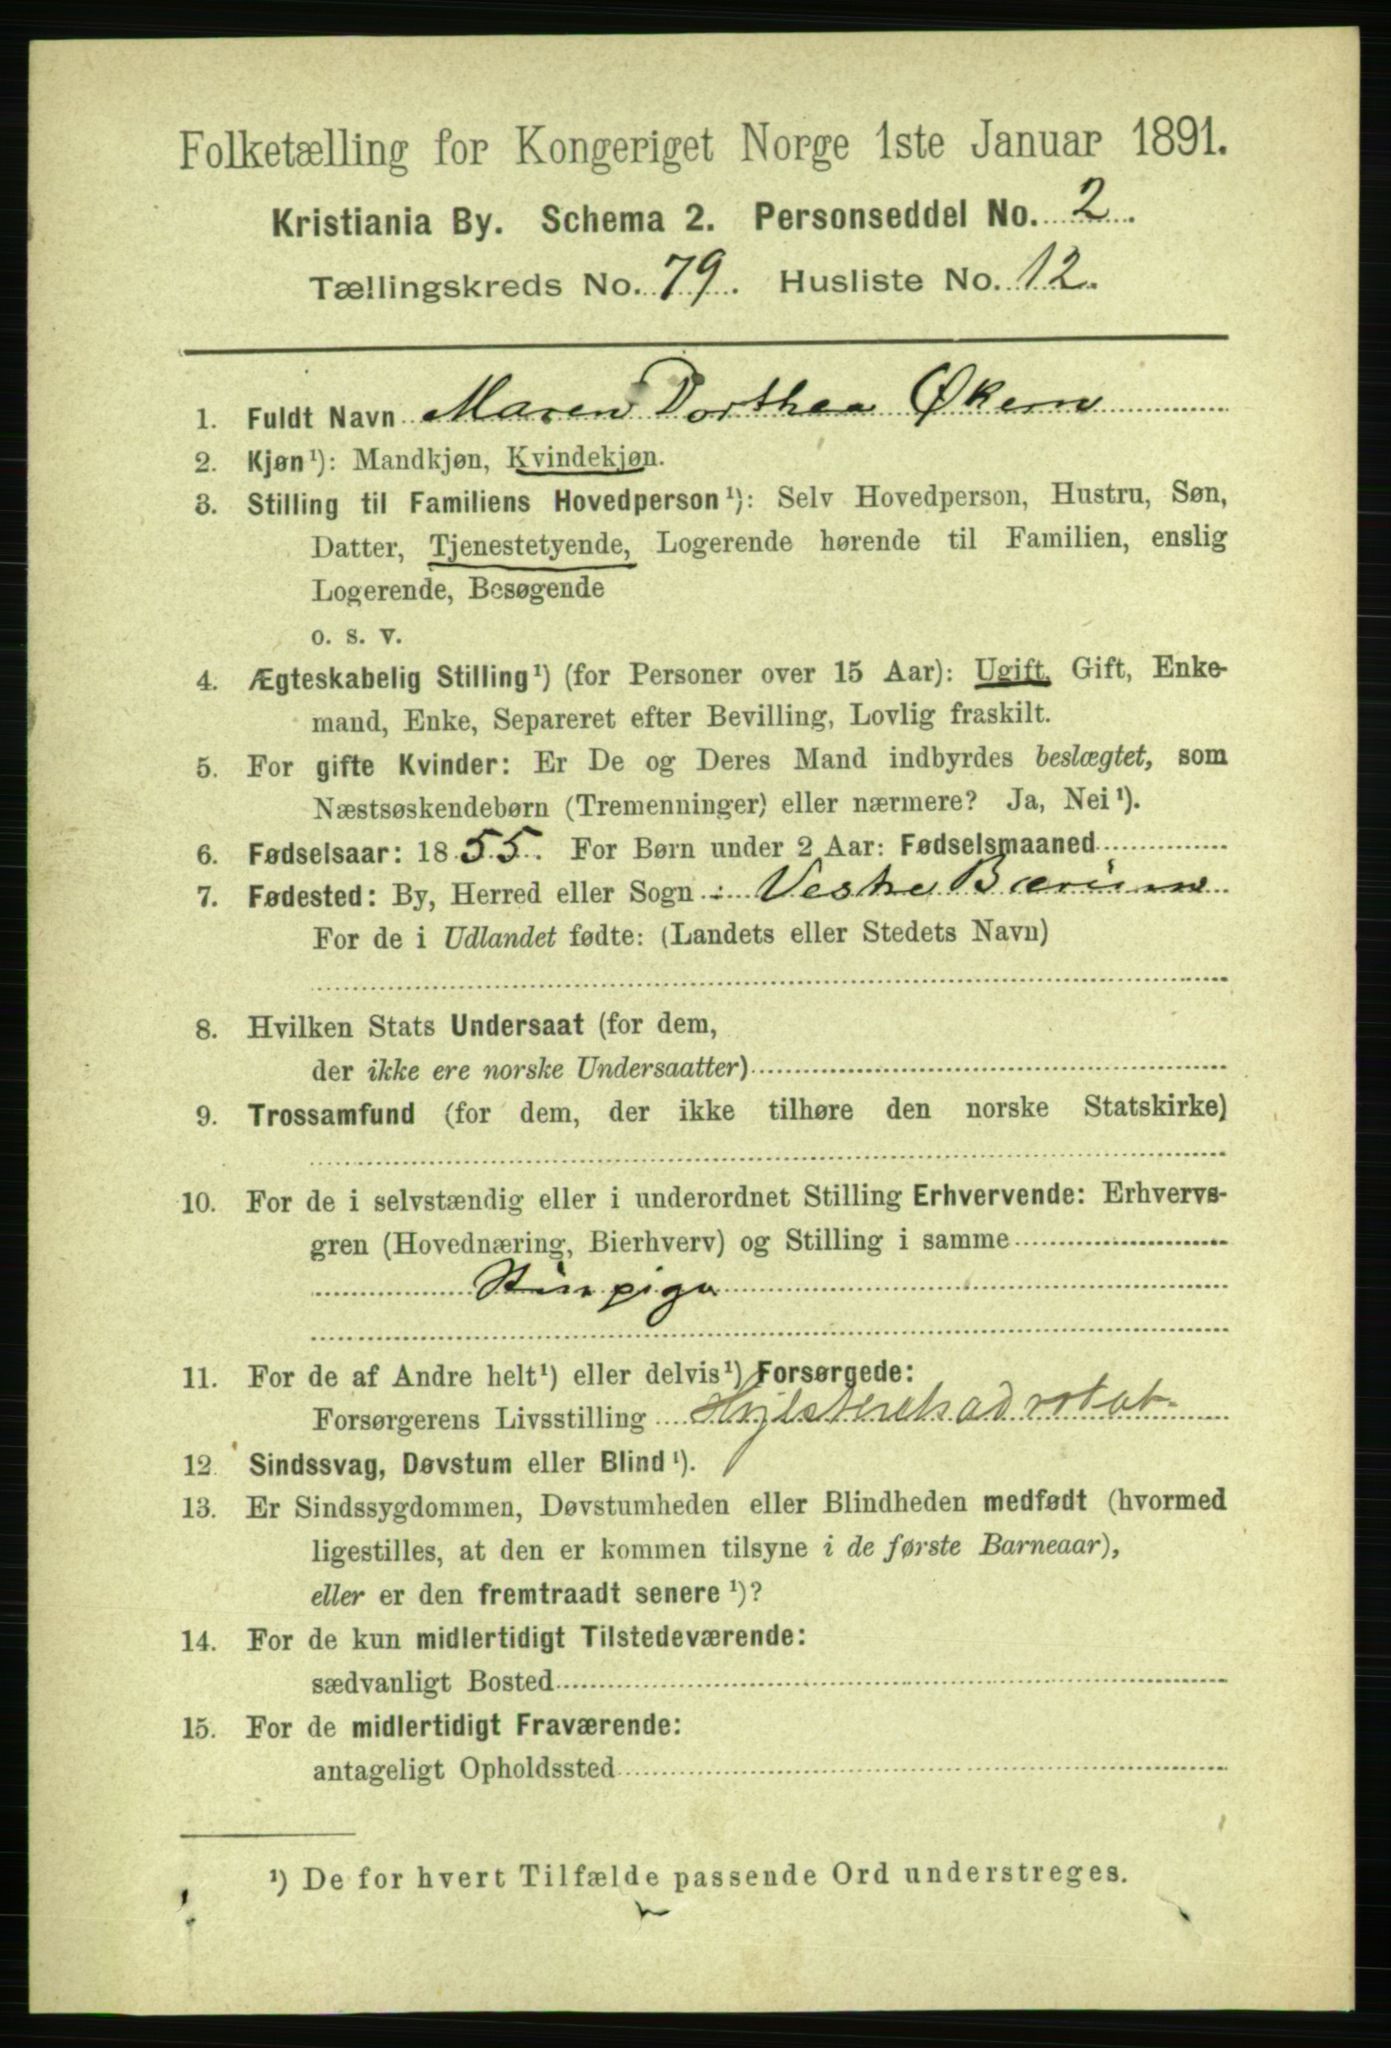 Folketælling for Kongeriget Norge 1ste Januar 1891.
Kristiania By. Schema 2. Personseddel No. 2.
Tællingskreds No. 79. Husliste No. 12.
1. Fuldt Navn Maren Dorthea Økern
2. Kjøn¹): Mandkjøn, Kvindekjøn.
3. Stilling til Familiens Hovedperson¹): Selv Hovedperson, Hustru, Søn,
Datter, Tjenestetyende, Logerende hørende til Familien, enslig
Logerende, Besøgende
o. s. v.
4. Ægteskabelig Stilling¹) (for Personer over 15 Aar): Ugift, Gift, Enke-
mand, Enke, Separeret efter Bevilling, Lovlig fraskilt.
5. For gifte Kvinder: Er De og Deres Mand indbyrdes beslægtet, som
Næstsøskendebørn (Tremenninger) eller nærmere? Ja, Nei¹).
6. Fødselsaar: 1855. For Børn under 2 Aar: Fødselsmaaned
7. Fødested: By, Herred eller Sogn: Vestre Bærum
For de i Udlandet fødte: (Landets eller Stedets Navn)
8. Hvilken Stats Undersaat (for dem,
der ikke ere norske Undersaatter)
9. Trossamfund (for dem, der ikke tilhøre den norske Statskirke)
10. For de i selvstændig eller i underordnet Stilling Erhvervende: Erhvervs-
gren (Hovednæring, Bierhverv) og Stilling i samme
Stuepige
11. For de af Andre helt¹) eller delvis¹) Forsørgede:
Forsørgerens Livsstilling
12. Sindssvag, Døvstum eller Blind¹).
13. Er Sindssygdommen, Døvstumheden eller Blindheden medfødt (hvormed
ligestilles, at den er kommen tilsyne i de første Barneaar),
eller er den fremtraadt senere¹)?
14. For de kun midlertidigt Tilstedeværende:
sædvanligt Bosted
15. For de midlertidigt Fraværende:
antageligt Opholdssted
¹) De for hvert Tilfælde passende Ord understreges.